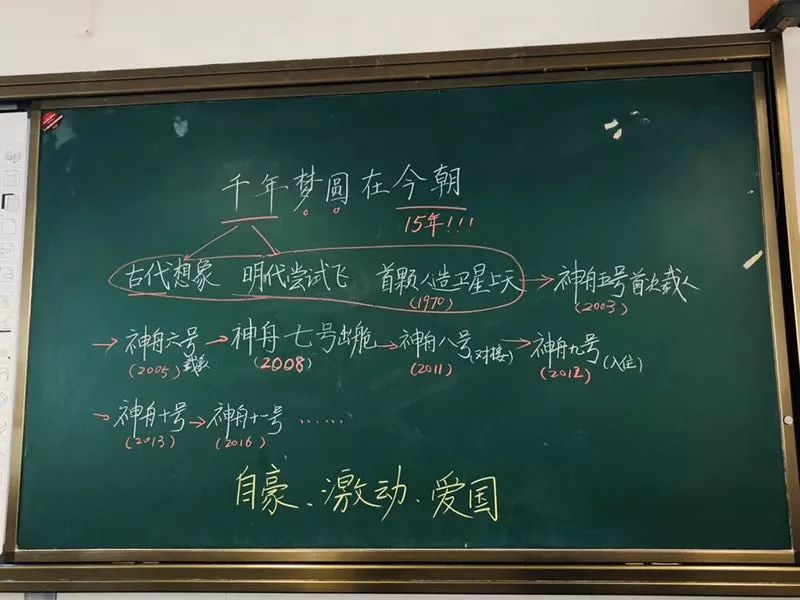 千年梦圆在今朝
15年!!!
古代想象 明代尝试飞 首颗人造卫星上天 → 神舟五号首次载人
(1970) (2003)
→ 神舟六号 → 神舟七号出舱 → 神舟八号(对接) → 神舟九号(入住)
(2005) (2008) (2011) (2012)
→ 神舟十号 → 神舟十一号 ……
(2013) (2016)
自豪、激动、爱国